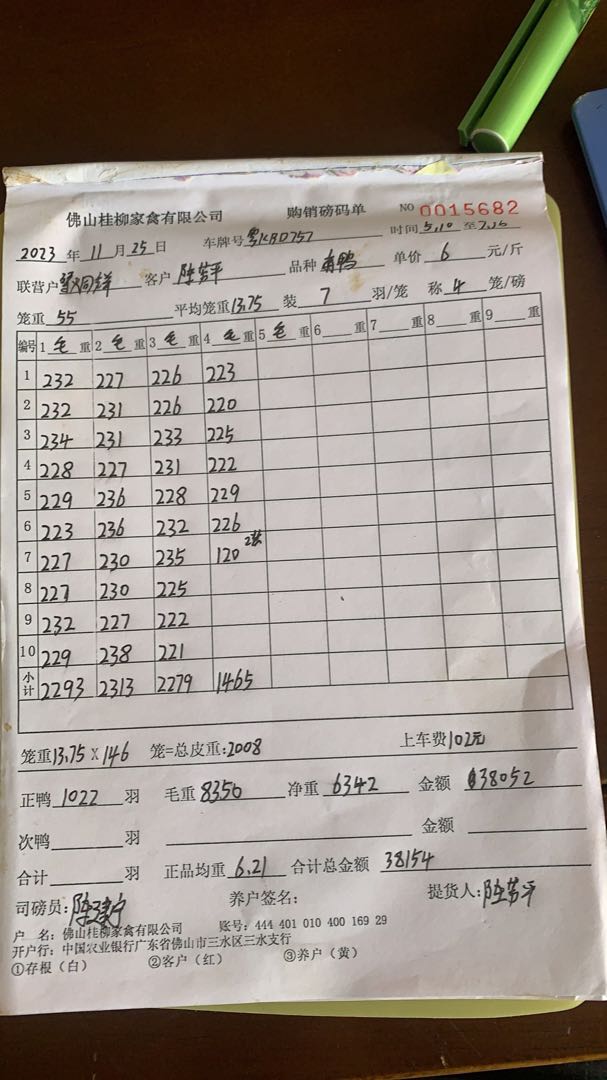 佛山桂柳家禽有限公司 购销磅码单 NO 0015682
2023 年 11 月 25 日 车牌号 粤KBD757 时间 5.10 至
联营户 客户 陈芳平 品种 单价 6 元/斤
笼重 55 平均笼重 13.75 装 7 羽/笼 称 4 笼/磅
编号 1 毛 重 2 毛 重 3 毛 重 4 毛 重 5 毛 重 6 重 7 重 8 重 9 重
1 232 227 226 223
2 232 231 226 220
3 234 231 233 225
4 228 227 231 222
5 229 236 228 229
6 223 236 232 226
7 227 230 235 120
8 227 230 225
9 232 227 222
10 229 238 221
小计 2293 2313 2279 1465
笼重 13.75 X 146 笼=总皮重: 2008 上车费 102元
正鸭 1022 羽 毛重 8350 净重 6342 金额 38052
次鸭 羽 金额
合计 羽 正品均重 6.21 合计总金额 38154
司磅员: 养户签名: 提货人: 陈芳平
户 名: 佛山桂柳家禽有限公司 账号: 444 401 010 400 169 29
开户行: 中国农业银行广东省佛山市三水区三水支行
①存根（白） ②客户（红） ③养户（黄）